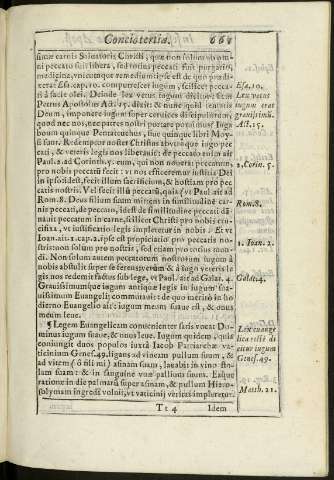 Concio tertia. 661
simæ carnis Saluatoris Christi, quæ non solùm ab om
ni peccato fuit libera, sed totius peccati fuit purgatio,
medicina, vnicumque remedium ipse est de quo prædi-
cerat Esa. cap. 10. computrescet iugum, scilicet pecca
ti à facie olei. Deinde lex vetus iugum fuit
Petrus Apostolus Act. 15. dixit: & nunc quid tentatis
Deum, imponere iugum super ceruices discipulorum,
quod nec nos, nec patres nostri portare potuimus? Iuga
boum quinque Pentateuchus, siue quinque libri Moy
si sunt. Redemptor noster Christus ab vtroque iugo pec
cati, & veteris legis nos liberauit: de peccato enim ait
Paul. 2. ad Corinth. 5. eum, qui non nouerat peccatum,
pro nobis peccatū fecit: vt nos efficeremur iustitia Dei
in ipso id est, fecit illum sacrificium, & hostiam pro pec
catis nostris. Vel fecit illū peccatū, quia (vt Paul. ait ad
Rom. 8. Deus filium suum mittens in similitudinē car-
nis peccati, de peccato, idest de similitudine peccati dā-
nauit peccatum in carne, scilicet Christi pro nobis cruci
fixa, vt iustificatio legis impleretur in nobis. Et vt
Ioan. ait 1. cap. 2. ipse est propiciatio pro peccatis no-
stris: non solùm pro nostris, sed etiam pro totius mun-
di. Non solùm autem peccatorum nostrorum iugum à
nobis abstulit super se ferens, verùm & à iugo veteris le
gis nos redemit factus sub lege, vt Paul. ait ad Galat. 4.
Grauissimumque iugum antiquæ legis in iugum sua-
uissimum Euangelij commutauit: de quo meritò in ho
dierno Euangelio ait: iugum meum suaue est, & onus
meum leue.
¶ Legem Euangelicam conuenienter satis vocat Do-
minus iugum suaue, & onus leue. Iugum quidem, quia
coniungit duos populos iuxta Iacob Patriarchæ va-
ticinium Genes. 49. ligans ad vineam pullum suum, &
ad vitem (ô fili mi) asinam suam, lauabit in vino sto-
lam suam: & in sanguine vuæ pallium suum. Eaque
ratione in die palmarū super asinam, & pullum Hiero-
solymam ingredi voluit, vt vaticinij veritas impleretur.
Tt 4 Idem
Esa. 10.
Lex vetus
iugum erat
grauissimū.
Act. 15.
2. Corin. 5.
Rom. 8.
1. Ioan. 2.
Galat. 4.
Lex euange
lica rectè di
citur iugum
Genes. 49.
Matth. 21.